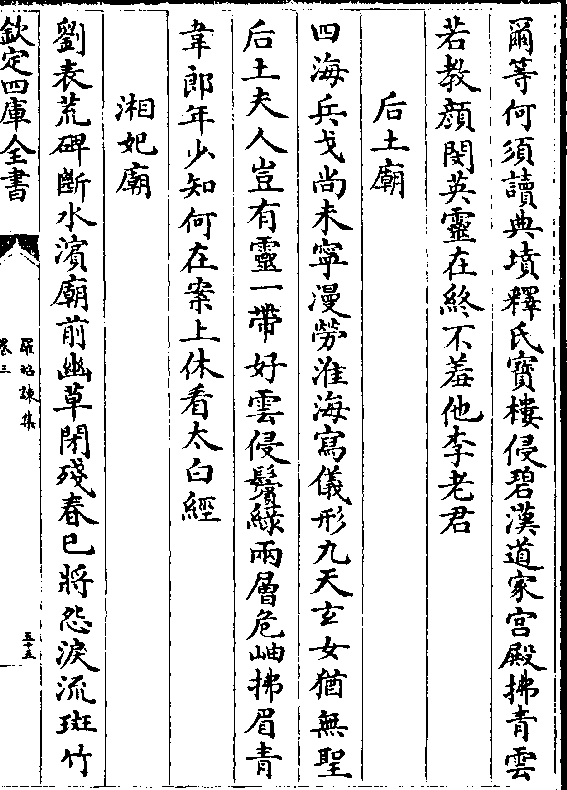 爾等何須讀典墳釋氏寳樓侵碧漢道家宫殿拂青雲
若教顔閔英靈在終不羞他李老君
后土廟
四海兵戈尚未寧漫勞淮海寫儀形九天玄女猶無聖
后土夫人豈有靈一帶好雲侵鬢緑兩層危岫拂眉青
韋郎年少知何在案上休看太白經
湘妃廟
劉表荒碑斷水濱廟前幽草閉殘春已將怨淚流斑竹
欽定四庫全書
羅昭諫集
卷三
五十五